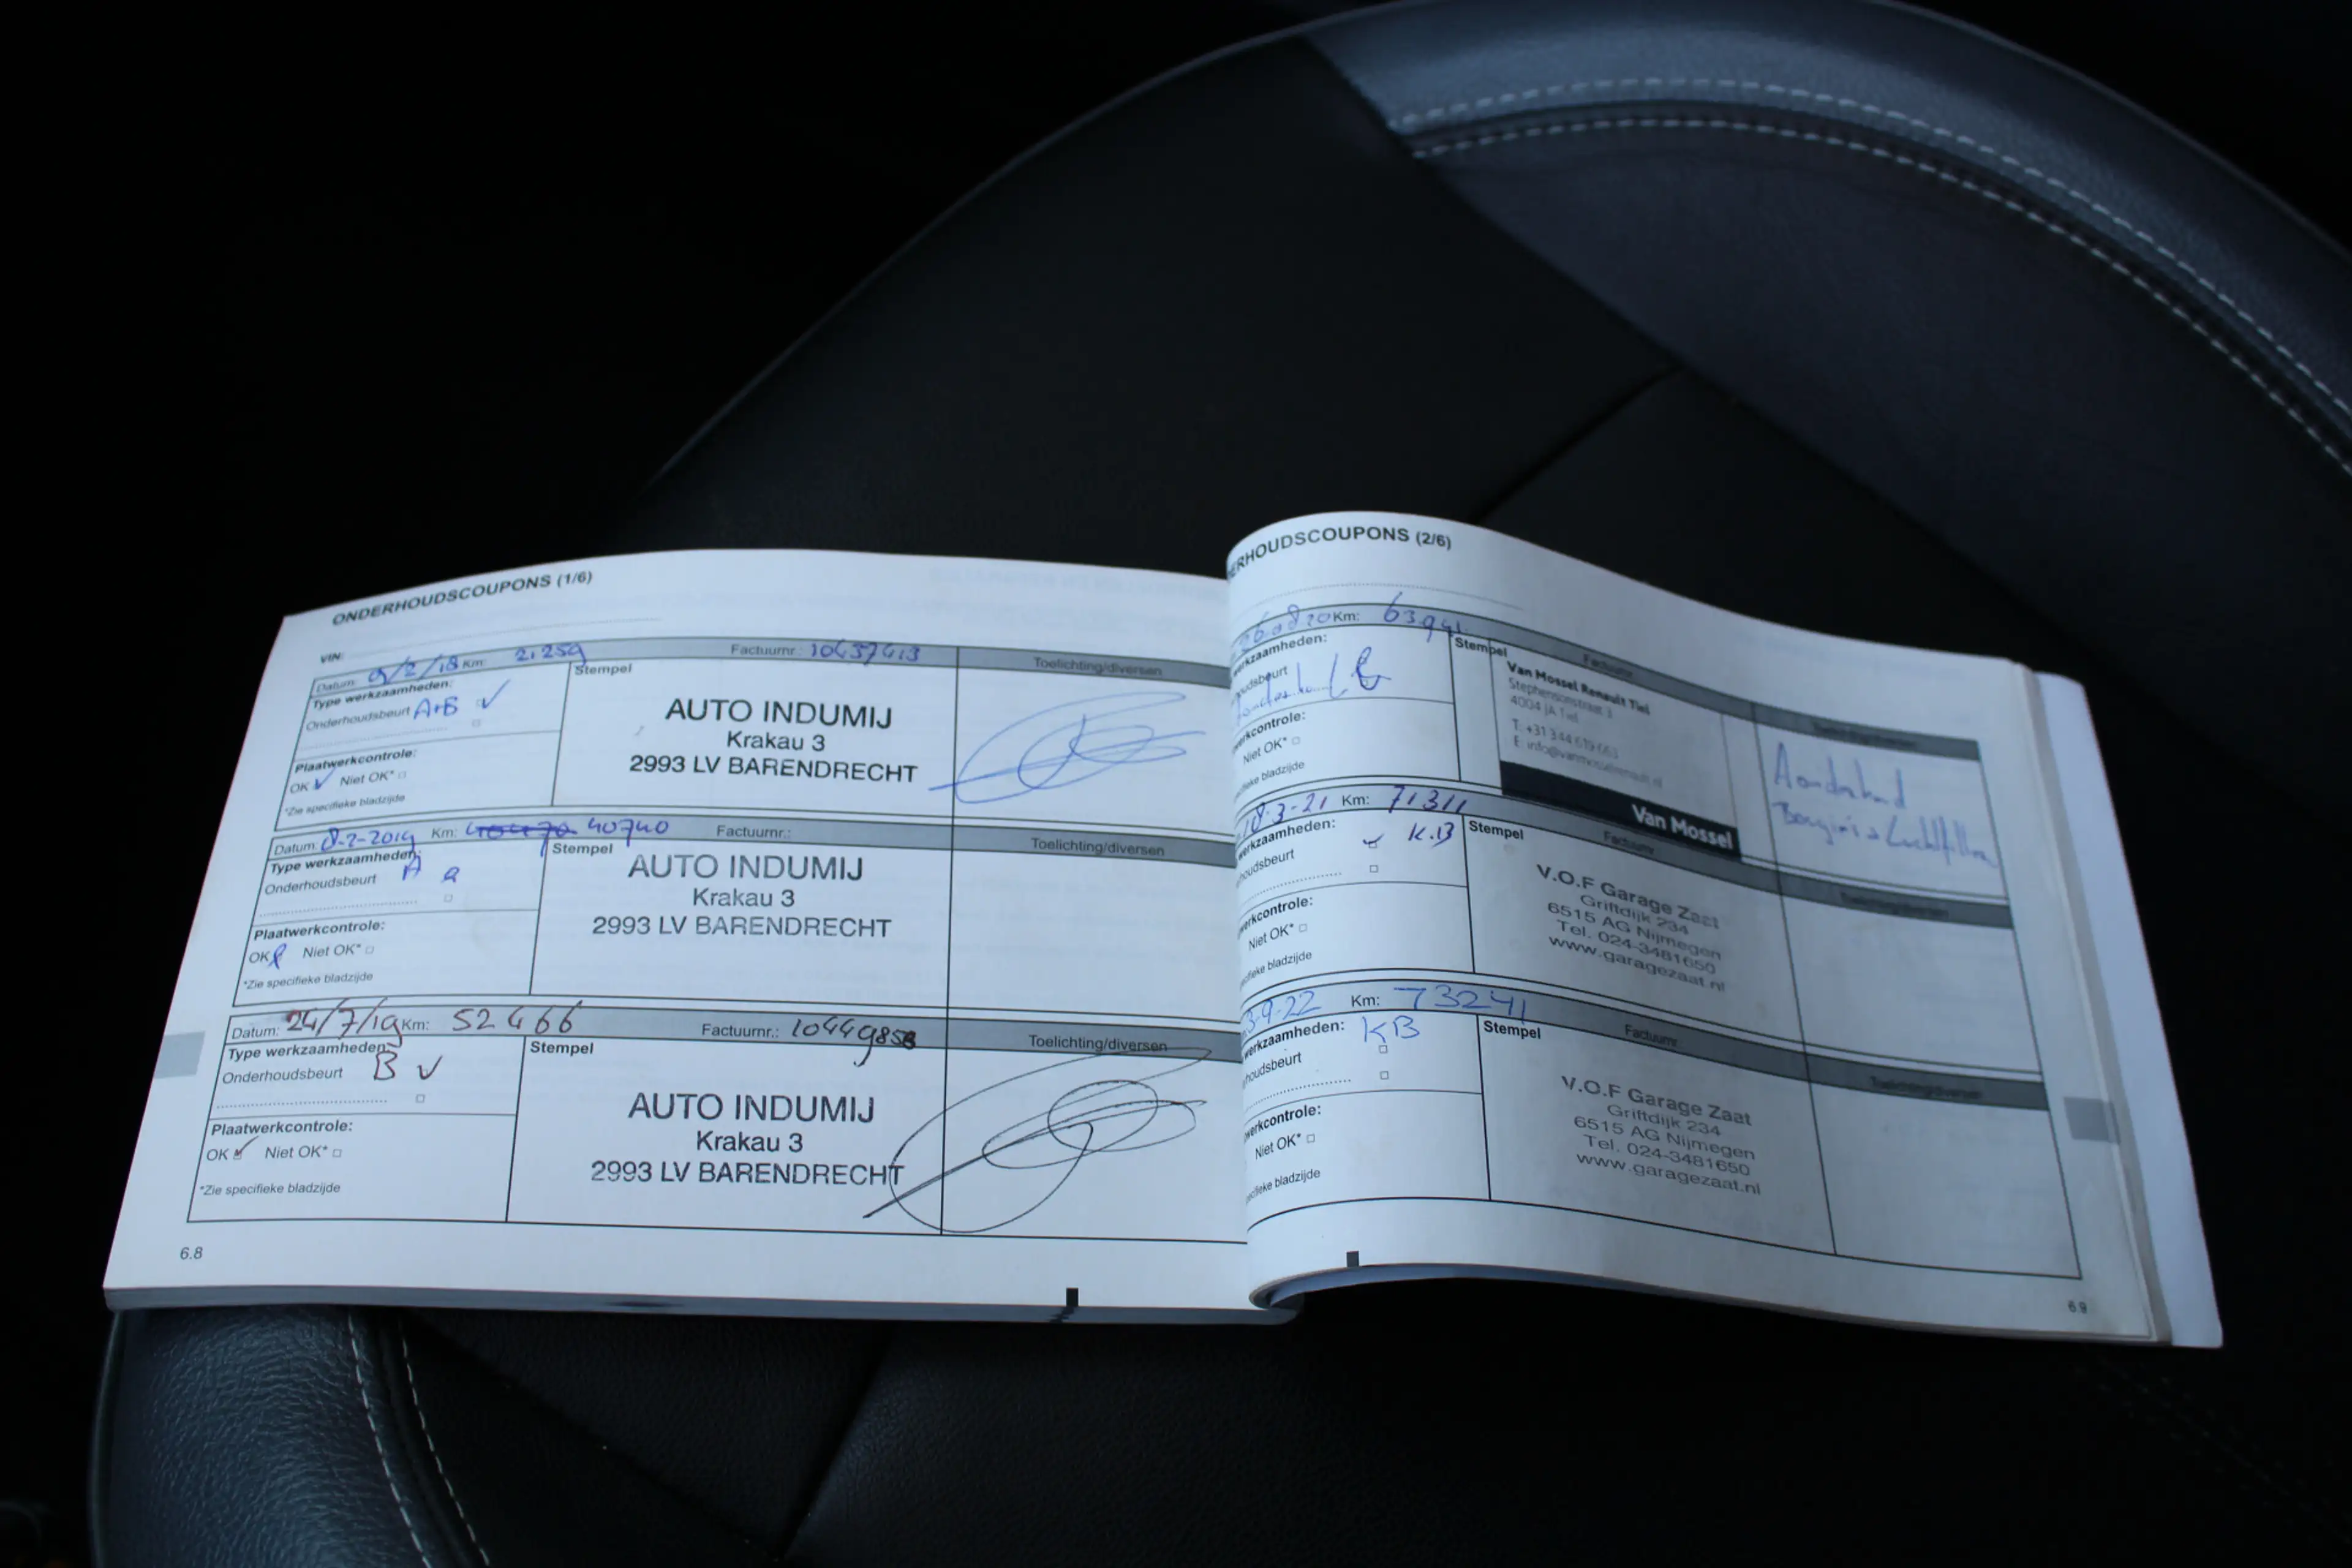 ONDERHOUDSCOUPONS (1/6)
VIN:
Datum: 9/2/18 Km: 21259 Factuurnr.: 10437413 Toelichting/diversen
Type werkzaamheden: Stempel
Onderhoudsbeurt A+B ✓
Plaatwerkcontrole:
OK ✓ Niet OK*
*Zie specifieke bladzijde
AUTO INDUMIJ
Krakau 3
2993 LV BARENDRECHT
Datum: 8-2-2019 Km: 40740 Factuurnr.: Toelichting/diversen
Type werkzaamheden: Stempel
Onderhoudsbeurt A
Plaatwerkcontrole:
OK Niet OK*
*Zie specifieke bladzijde
AUTO INDUMIJ
Krakau 3
2993 LV BARENDRECHT
Datum: 24/7/19 Km: 52466 Factuurnr.: 10449858 Toelichting/diversen
Type werkzaamheden: Stempel
Onderhoudsbeurt B ✓
Plaatwerkcontrole:
OK ✓ Niet OK*
*Zie specifieke bladzijde
AUTO INDUMIJ
Krakau 3
2993 LV BARENDRECHT
6.8
ERHOUDSCOUPONS (2/6)
Km: 63941 Factuurnr.
werkzaamheden: Stempel
houdsbeurt
werkcontrole:
Niet OK*
fieke bladzijde
Van Mossel Renault Tiel
Stephensonstraat 3
4004 JA Tiel
T: +31 344 619 663
E: info@vanmosselrenault.nl
Van Mossel
Toelichting/diversen
18-3-21 Km: 71311 Factuurnr.
werkzaamheden: ✓ K.B Stempel
houdsbeurt
werkcontrole:
Niet OK*
cifieke bladzijde
V.O.F Garage Zaat
Griftdijk 234
6515 AG Nijmegen
Tel. 024-3481650
www.garagezaat.nl
Toelichting/diversen
3-9-22 Km: 73241 Factuurnr.
werkzaamheden: KB Stempel
houdsbeurt
werkcontrole:
Niet OK*
ecifieke bladzijde
V.O.F Garage Zaat
Griftdijk 234
6515 AG Nijmegen
Tel. 024-3481650
www.garagezaat.nl
Toelichting/diversen
6.9